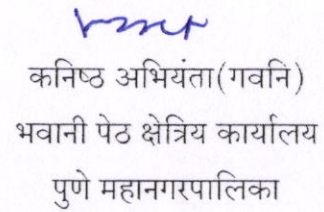 कनिष्ठ अभियंता(गवनि)
भवानी पेठ क्षेत्रिय कार्यालय
पुणे महानगरपालिका